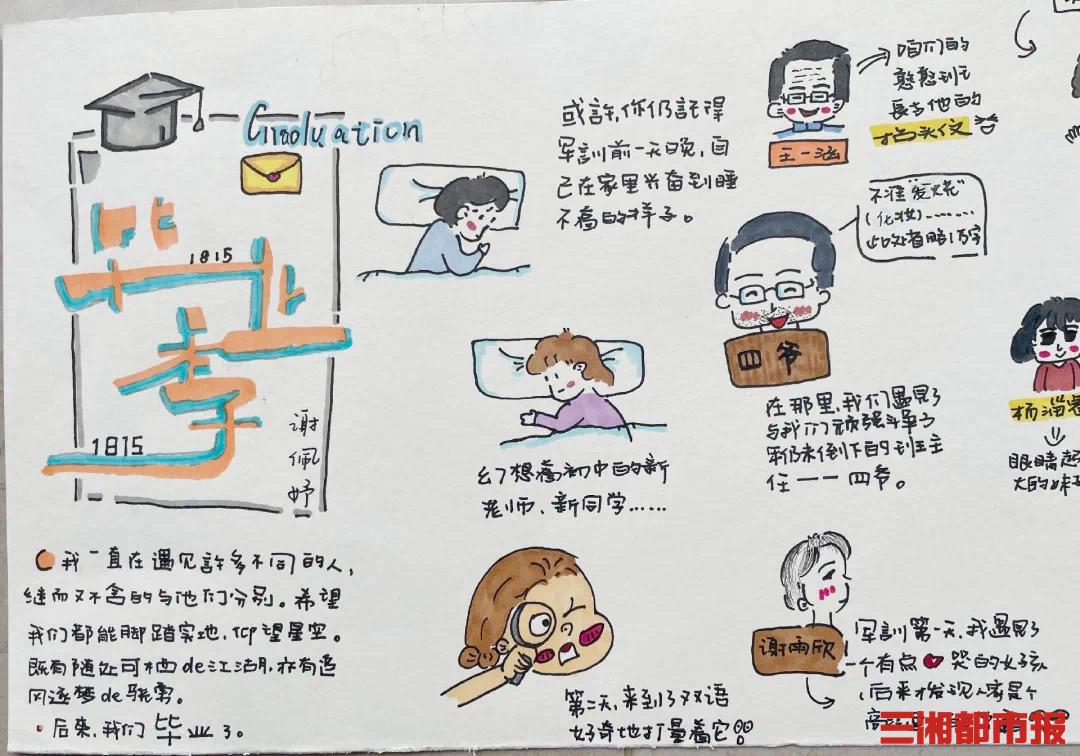 Graduation
毕业季
1815
1815
谢佩妤
我一直在遇见許多不同的人,
继而又不舍的与他们分别。希望
我们都能脚踏实地,仰望星空。
既有随处可栖de江湖,亦有追
风逐梦de骁勇。
后来,我们毕业了。
或許,你仍記得
军訓前一天晚,自
己在家里兴奋到睡
不着的样子。
幻想着初中的新
老师、新同学……
第二天,来到了双语
好奇地打量着它
咱们的
憨憨班
長与他的
抬头纹
王一涵
不准"发烧"
(化妆)........
此处省略1万字
四爷
在那里,我们遇見了
与我们顽强斗争
仍未倒下的班主
任——四爷。
谢雨欣
军訓第一天,我遇見了
一个有点 哭的女孩
后来才发现人家是个
杨
眼睛超
大的妹
三湘都市报